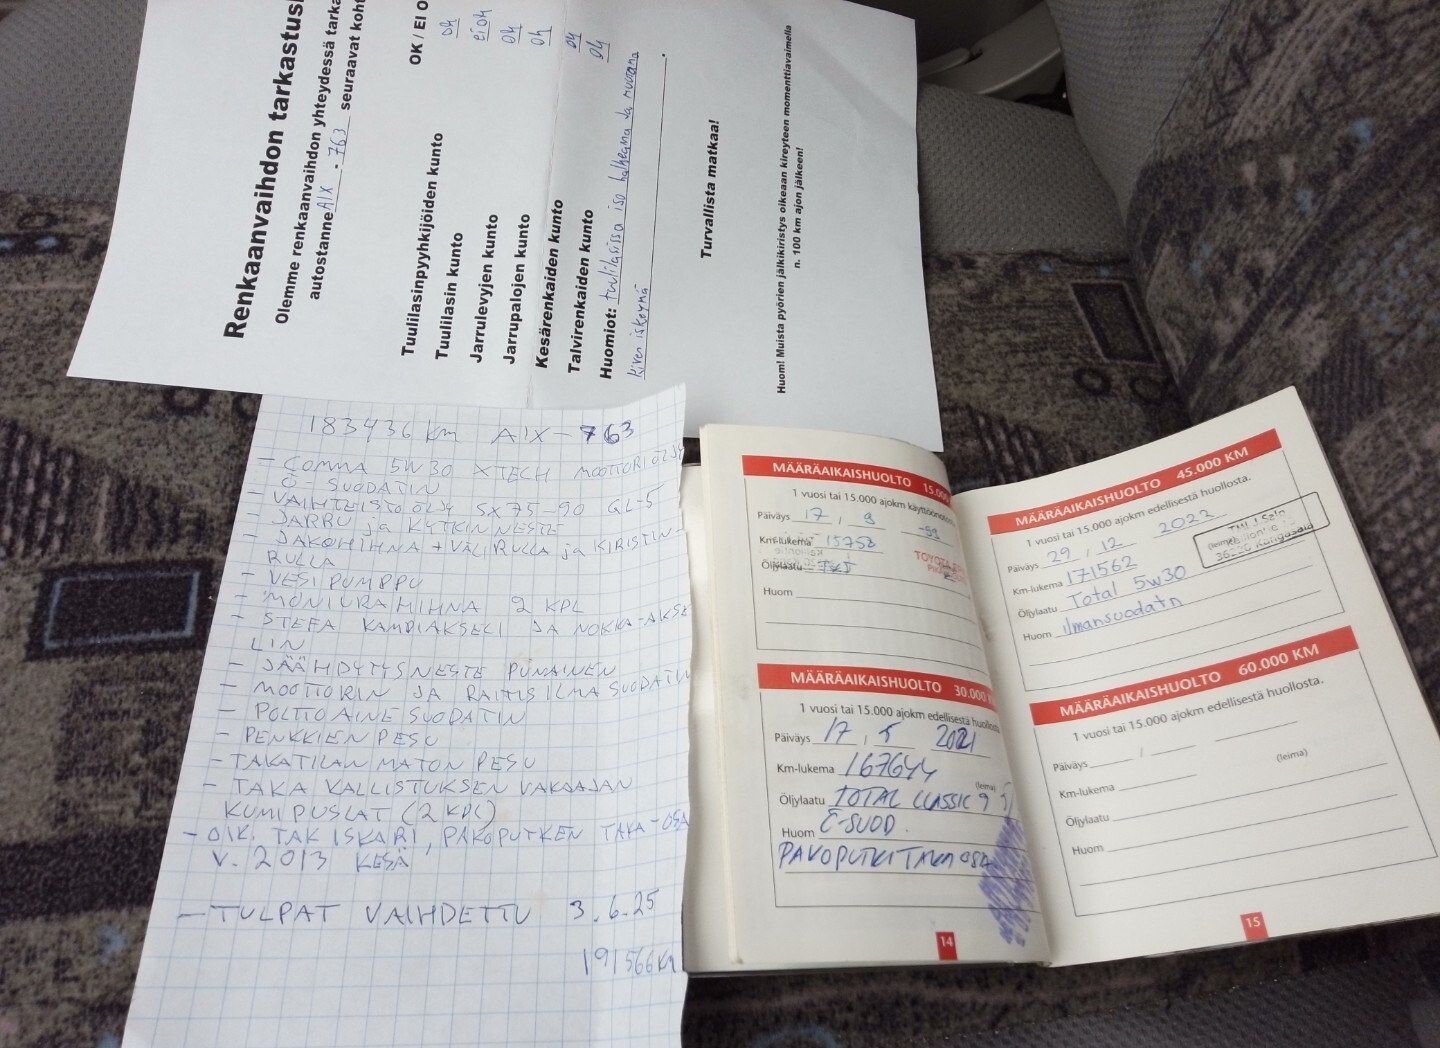 Renkaanvaihdon tarkastus
Olemme renkaanvaihdon yhteydessä tarka
autostanne AIX - 763 seuraavat koht
OK / EI O
Tuulilasinpyyhkijöiden kunto ok
Tuulilasin kunto ei ok
Jarrulevyjen kunto ok
Jarrupalojen kunto ok
Kesärenkaiden kunto ok
Talvirenkaiden kunto ok
Huomiot: tuulilasissa iso halkeama ja muutama
kiven iskeymä
Turvallista matkaa!
Huom! Muista pyörien jälkikiristys oikeaan kireyteen momenttiavaimella
n. 100 km ajon jälkeen!
183436 km AIX-763
- COMMA 5W30 XTECH MOOTTORIÖLJY
Ö-SUODATIN
- VAIHTEISTOÖLJY SX75-90 GL-5
- JARRU ja KYTKINNESTE
- JAKOHIHNA + VÄLIRULLA ja KIRISTIN
RULLA
- VESIPUMPPU
- MONIURAHIHNA 2 KPL
- STEFA KAMPIAKSELI JA NOKKA-AKSE
LIN
- JÄÄHDYTYSNESTE PUNAINEN
- MOOTTORIN JA RAITISILMASUODATIN
- POLTTOAINESUODATIN
- PENKKIEN PESU
- TAKATILAN MATON PESU
- TAKA KALLISTUKSEN VAKAAJAN
KUMIPUSLAT (2 KPL)
- OIK. TAK ISKARI, PAKOPUTKEN TAKA-OSA
V. 2013 KESÄ
- TULPAT VAIHDETTU 3.6.25
191566 km
MÄÄRÄAIKAISHUOLTO 15.000
1 vuosi tai 15.000 ajokm käyttöönotosta
Päiväys 17 , 9 -99
Km-lukema 15752
Öljylaatu
TOYOTA
Huom
MÄÄRÄAIKAISHUOLTO 30.000 K
1 vuosi tai 15.000 ajokm edellisestä huollosta
Päiväys 17 , 5 2021
Km-lukema 167644
(leima)
Öljylaatu TOTAL CLASSIC 9 5
Huom Ö-SUOD.
PAKOPUTKI TAKAOSA
14
MÄÄRÄAIKAISHUOLTO 45.000 KM
1 vuosi tai 15.000 ajokm edellisestä huollosta.
Päiväys 29 , 12 2022
(leima)
36220 Kangasala
Km-lukema 171562
Öljylaatu Total 5w30
Huom ilmansuodatn
MÄÄRÄAIKAISHUOLTO 60.000 KM
1 vuosi tai 15.000 ajokm edellisestä huollosta.
Päiväys /
Km-lukema
(leima)
Öljylaatu
Huom
15